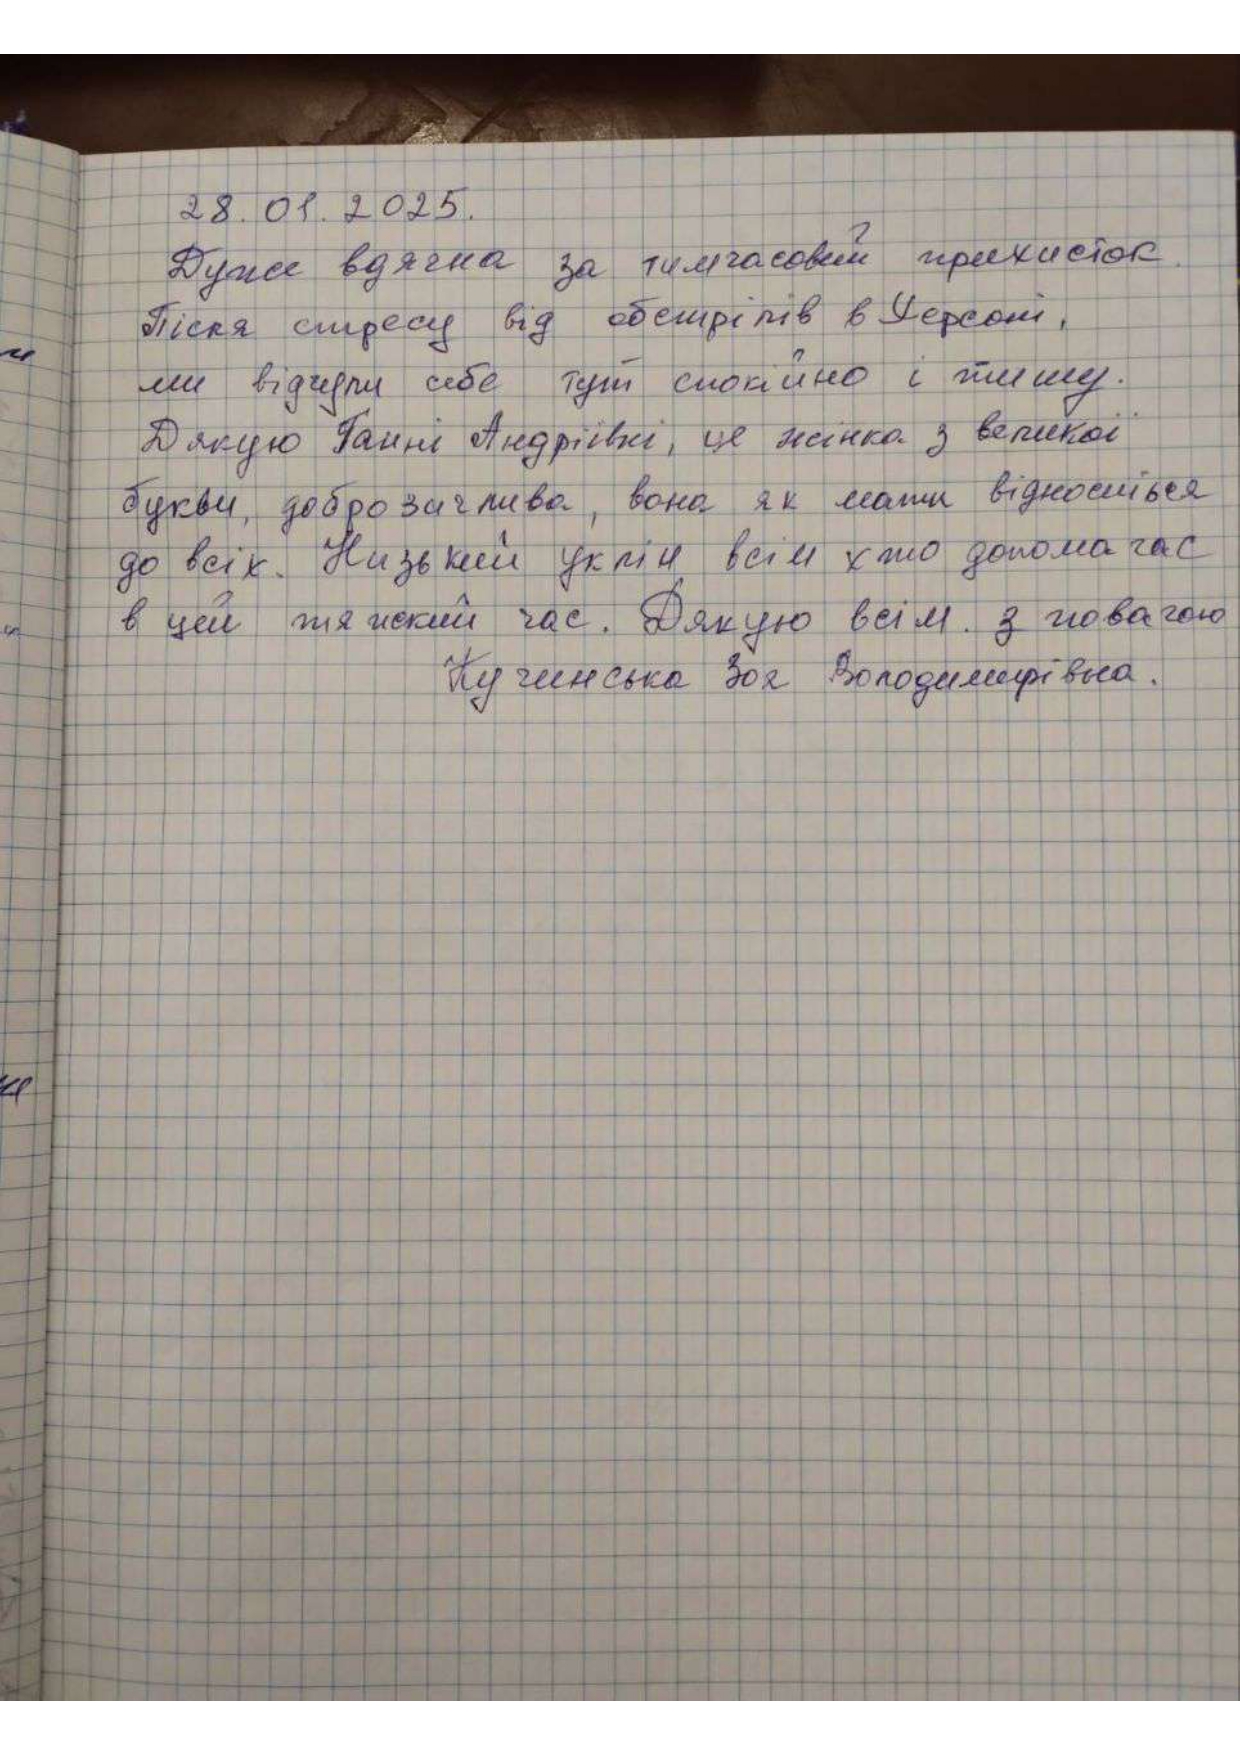 28.01.2025.
Дуже вдячна за тимчасовий прихисток.
Після стресу від обстрілів в Херсоні,
ми відчули себе тут спокійно і тишу.
Дякую Ганні Андріївні, це жінка з великої
букви, доброзичлива, вона як мати відноситься
до всіх. Низький уклін всім хто допомагає
в цей тяжский час. Дякую всім. З повагою
Кучинська Зоя Володимирівна.